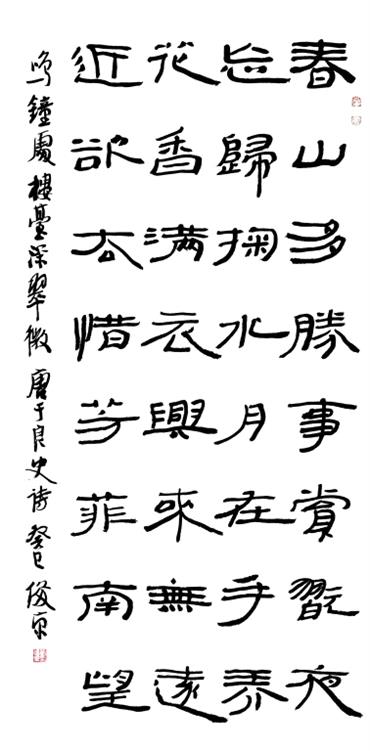 春山多勝事賞翫夜
忘歸掬水月在手弄
花香滿衣興來無遠
近欲去惜芳菲南望
鳴鐘處樓臺深翠微 唐于良史詩 癸巳 俊京